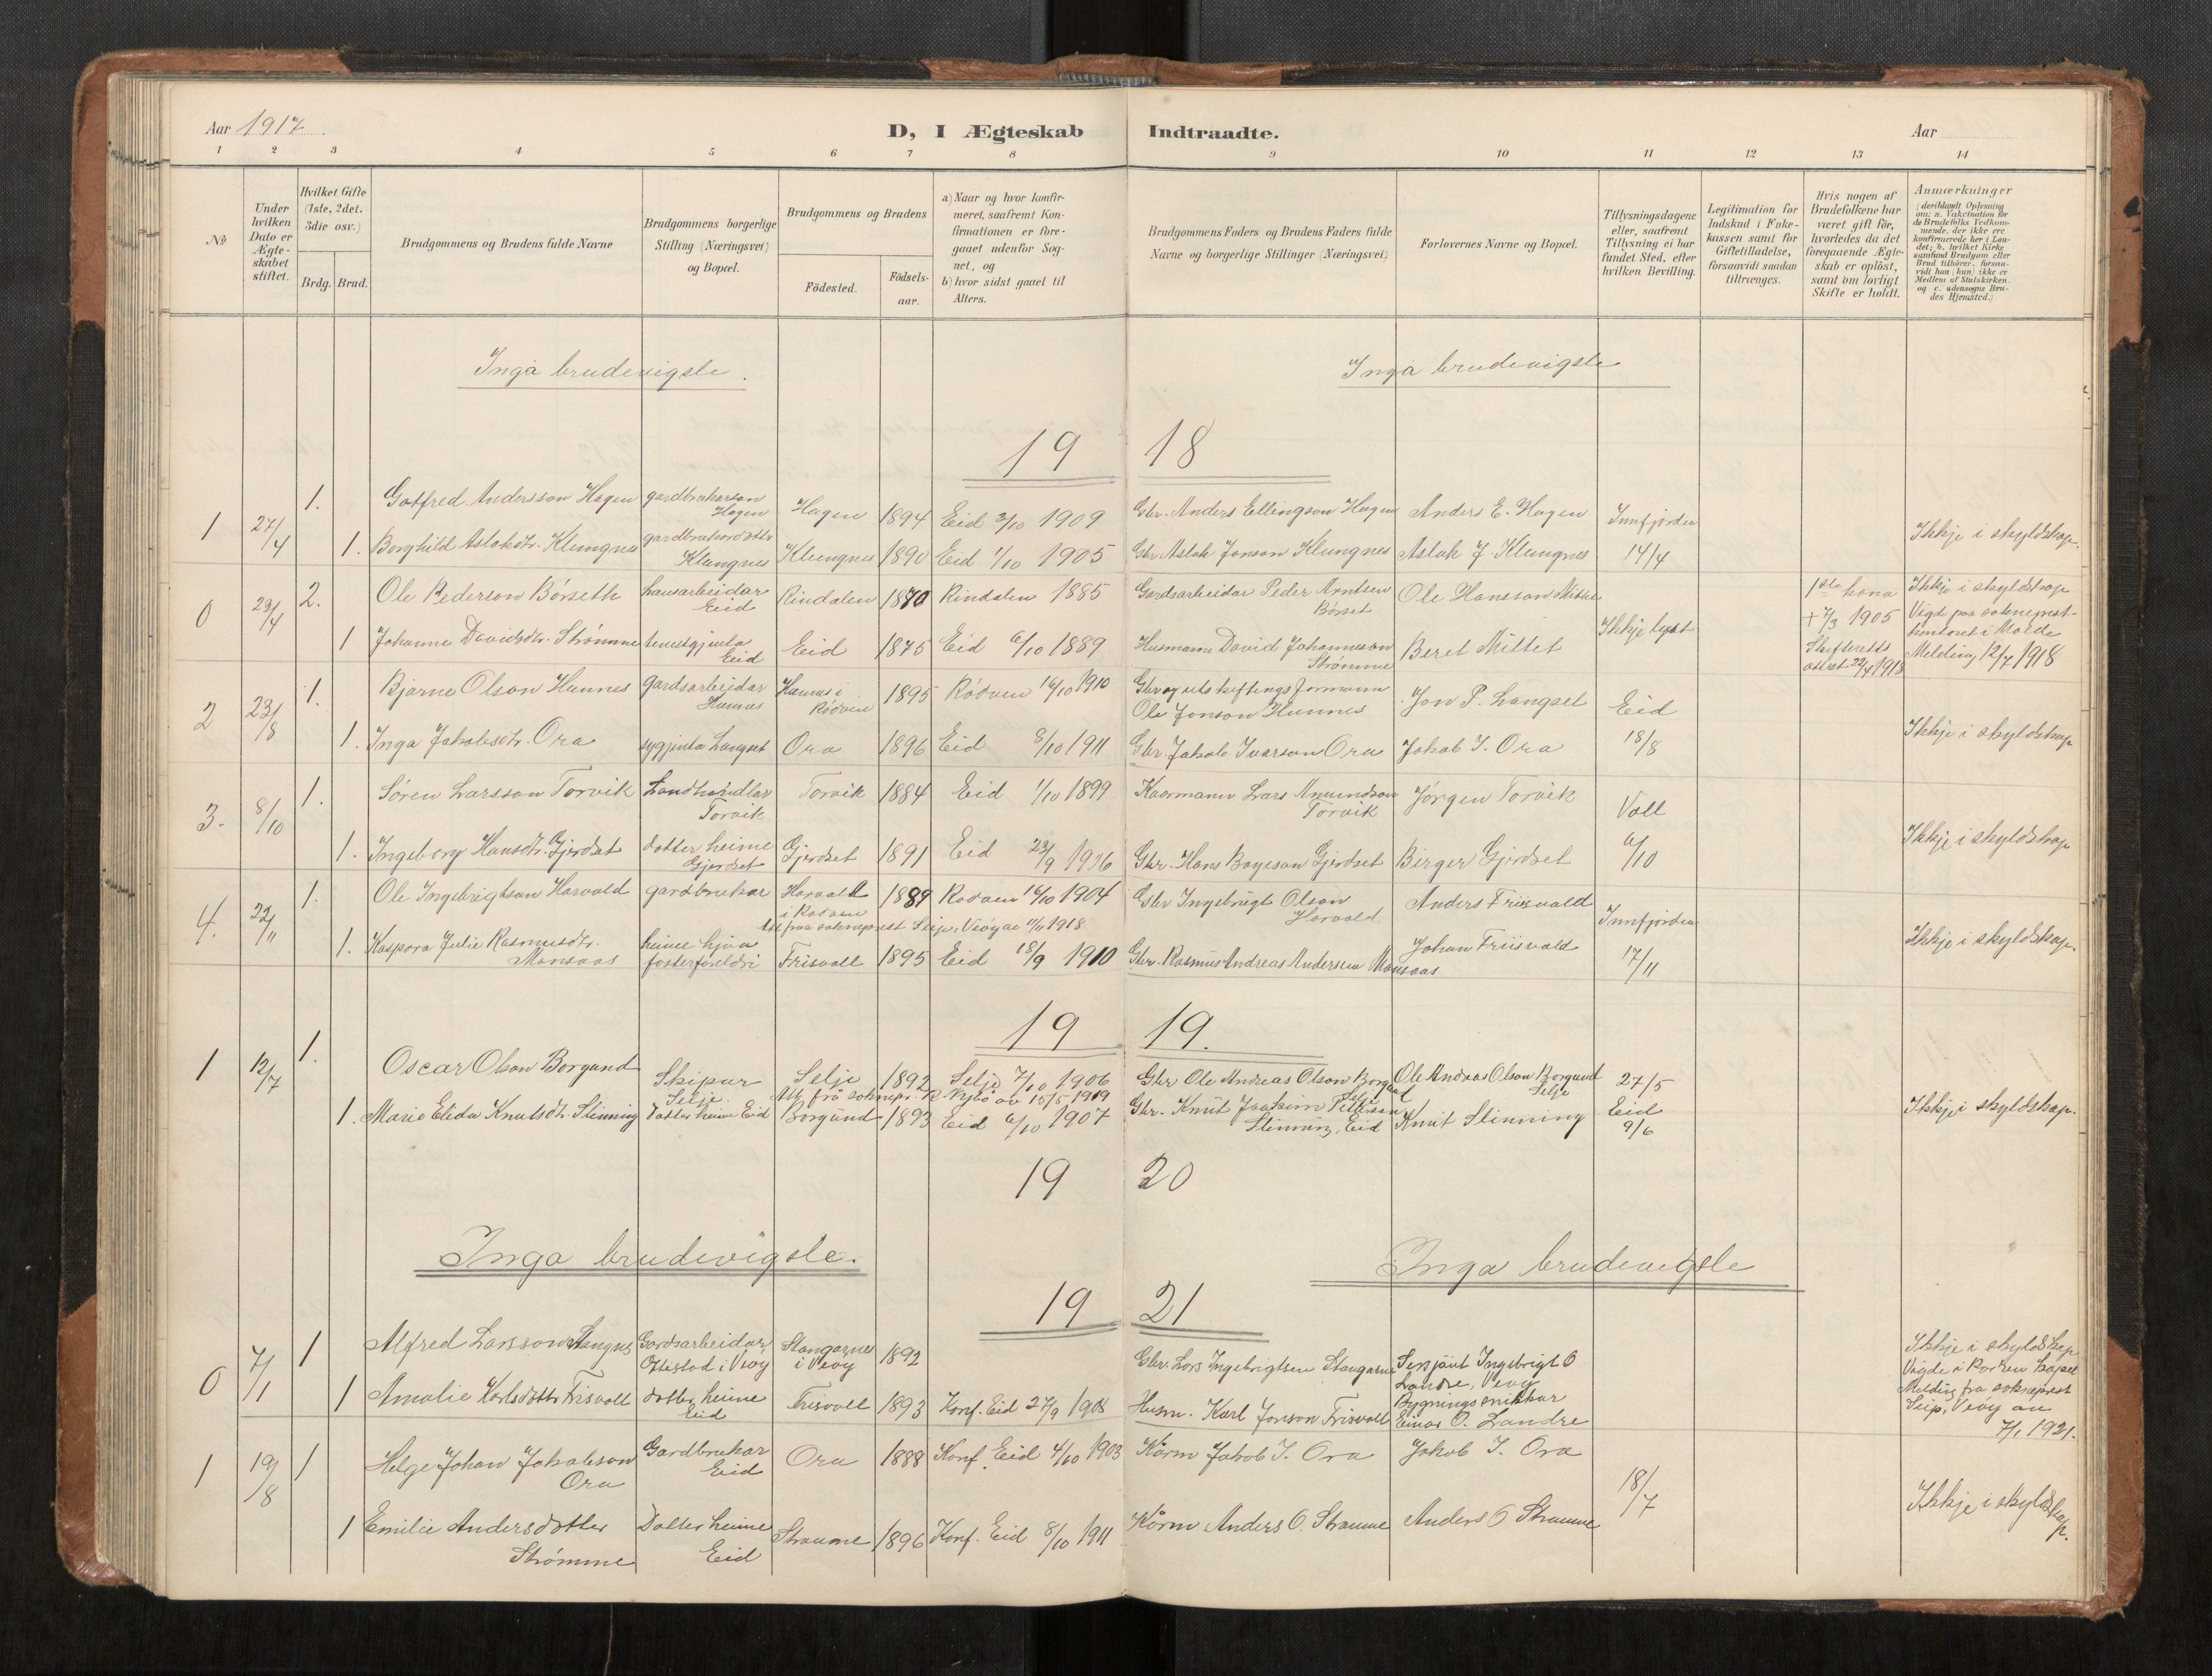 Aar 1917.
D, I Ægteskab Indtraadte.
Aar
1 2 3 4 5 6 7 8 9 10 11 12 13 14
No
Under hvilken Dato er Ægteskabet stiftet.
Hvilket Gifte (1ste, 2det, 3die osv.)
Brdg. Brud.
Brudgommens og Brudens fulde Navne
Brudgommens borgerlige Stilling (Næringsvei) og Bopæl.
Brudgommens og Brudens
Födested.
Födsels-aar.
a) Naar og hvor konfir-
meret, saafremt Kon-
firmationen er fore-
gaaet udenfor Sog-
net, og
b) hvor sidst gaaet til
Alters.
Brudgommens Faders og Brudens Faders fulde
Navne og borgerlige Stillinger (Næringsvei)
Forlovernes Navne og Bopæl.
Tillysningsdagene
eller, saafremt
Tillysning ei har
fundet Sted, efter
hvilken Bevilling.
Legitimation for
Indskud i Enke-
kassen samt for
Giftetilladelse,
forsaavidt saadan
tiltrænges.
Hvis nogen af
Brudefolkene har
været gift för,
hvorledes da det
foregaaende Ægte-
skab er oplöst,
samt om lovligt
Skifte er holdt.
Anmærkninger
(deriblandt Oplysning
om: a. Vakcination for
de Brudefolks Vedkom-
mende, der ikke ere
konfirmerede her i Lan-
det; b. hvilket Kirke
samfund Brudgom eller
Brud tilhörer, forsaa-
vidt han (hun) ikke er
Medlem af Statskirken.
og c. udensogns Bru-
des Hjemsted.)
Inga brudevigsle. Inga brudevigsle
19 18
1 27/4 1. Gotfred Andersson Hagen gardbrukarson Hagen Hagen 1894 Eid 3/10 1909 Gbr. Anders Ellingson Hagen Anders E. Hagen Innfjorden
1. Borghild Aslaksdtr. Klungnes gardbrukardotter Klungnes Klungnes 1890 Eid 1/10 1905 Gbr Aslak Jonson Klungnes Aslak J. Klungnes 14/4 Ikkje i skyldskap.
0 23/4 2. Ole Pederson Børseth hausarbeidar Eid Rindalen 1870 Rindalen 1885 Gardsarbeidar Peder Arntsen Børset Ole Hansson Mittet Ikkje lyst 1ste kona + 7/3 1905 Skifteretts attest 22/4 1918 Ikkje i skyldskap
Vigd paa sokneprest-
kontoret i Molde
Melding 12/7 1918
1 Johanne Davidsdtr. Strømme tenestgjenta Eid Eid 1875 Eid 6/10 1889 Husmann David Johannesson Strømme Beret Mittet
2 23/8 1. Bjarne Olson Hunnes Gardsarbeidar Hunnes Hunnes i Rødven 1895 Rødven 16/10 1910 Gbr og utskiftings formann Ole Jonson Hunnes Jon P. Langset Eid
1. Inga Jakobsdtr. Ora sygjenta Langset Ora 1896 Eid 8/10 1911 Gbr. Jakob Ivarson Ora Jakob I. Ora 18/8 Ikkje i skyldskap
3. 8/10 1. Søren Larsson Torvik Landhandlar Torvik Torvik 1884 Eid 1/10 1899 Kaarmann Lars Amundson Torvik Jørgen Torvik Voll
1. Ingeborg Hansdtr. Gjerdset dotter heime Gjerdset Gjerdset 1891 Eid 23/9 1906 Gbr. Hans Bøyeson Gjerdset Birger Gjerdset 6/10 Ikkje i skyldskap
4. 22/11 1. Ole Ingebrigtson Harvold gardbrukar Harvold i Rødven 1889 Rødven 16/10 1904 Gbr Ingebrigt Olson Harvold Anders Friisvold Innfjorden
Att. fraa sokneprest Seip, Veøy av 11/11 1918
1. Kaspara Julie Rasmusdtr. Monsaas heime hjaa fosterforeldri Frisvoll 1895 Eid 18/9 1910 Gbr. Rasmus Andreas Andersen Monsaas Johan Friisvold 17/11 Ikkje i skyldskap.
19 19.
1 12/7 1. Oscar Olson Borgund Skipar Selje Selje 1892 Selje 7/10 1906 Gbr Ole Andreas Olson Borgund Selje Ole Andreas Olson Borgund Selje 27/5
Att. frå sokneprest av 15/5 1919
1. Marie Elida Knutsdtr. Slinning dotter heime Eid Borgund 1893 Eid 6/10 1907 Gbr. Knut Joakim Peterson Slinning, Eid Knut Slinning Eid 9/6 Ikkje i skyldskap.
19 20
Inga brudevigsle. Inga brudevigsle
19 21
0 7/1 1 Alfred Larsson Stangnes Gardsarbeidar Ottestad i Veøy Stangarnes i Veøy 1892 Gbr. Lars Ingebrigtsen Stangarnes Sersjant Ingebrigt O Landre, Veøy Ikkje i skyldskap
Vigde i Rødven kapel
Melding fra sokneprest
Seip, Veøy av
7/1 1921.
1 Amalie Karlsdotter Frisvoll dotter heime Eid Frisvoll 1893 Konf. Eid 27/9 1908 Husm. Karl Jonson Frisvoll Bygningssnikkar Einar O. Landre
1 19/8 1 Helge Johan Jakobson Ora Gardbrukar Eid Ora 1888 Konf. Eid 4/10 1903 Kårm Jakob I. Ora Jakob I. Ora 18/7
1 Emilie Andersdotter Strømme Dotter heime Eid Straume 1896 Konf. Eid 8/10 1911 Kårm Anders O. Straume Anders O Straume Ikkje i skyldskap.